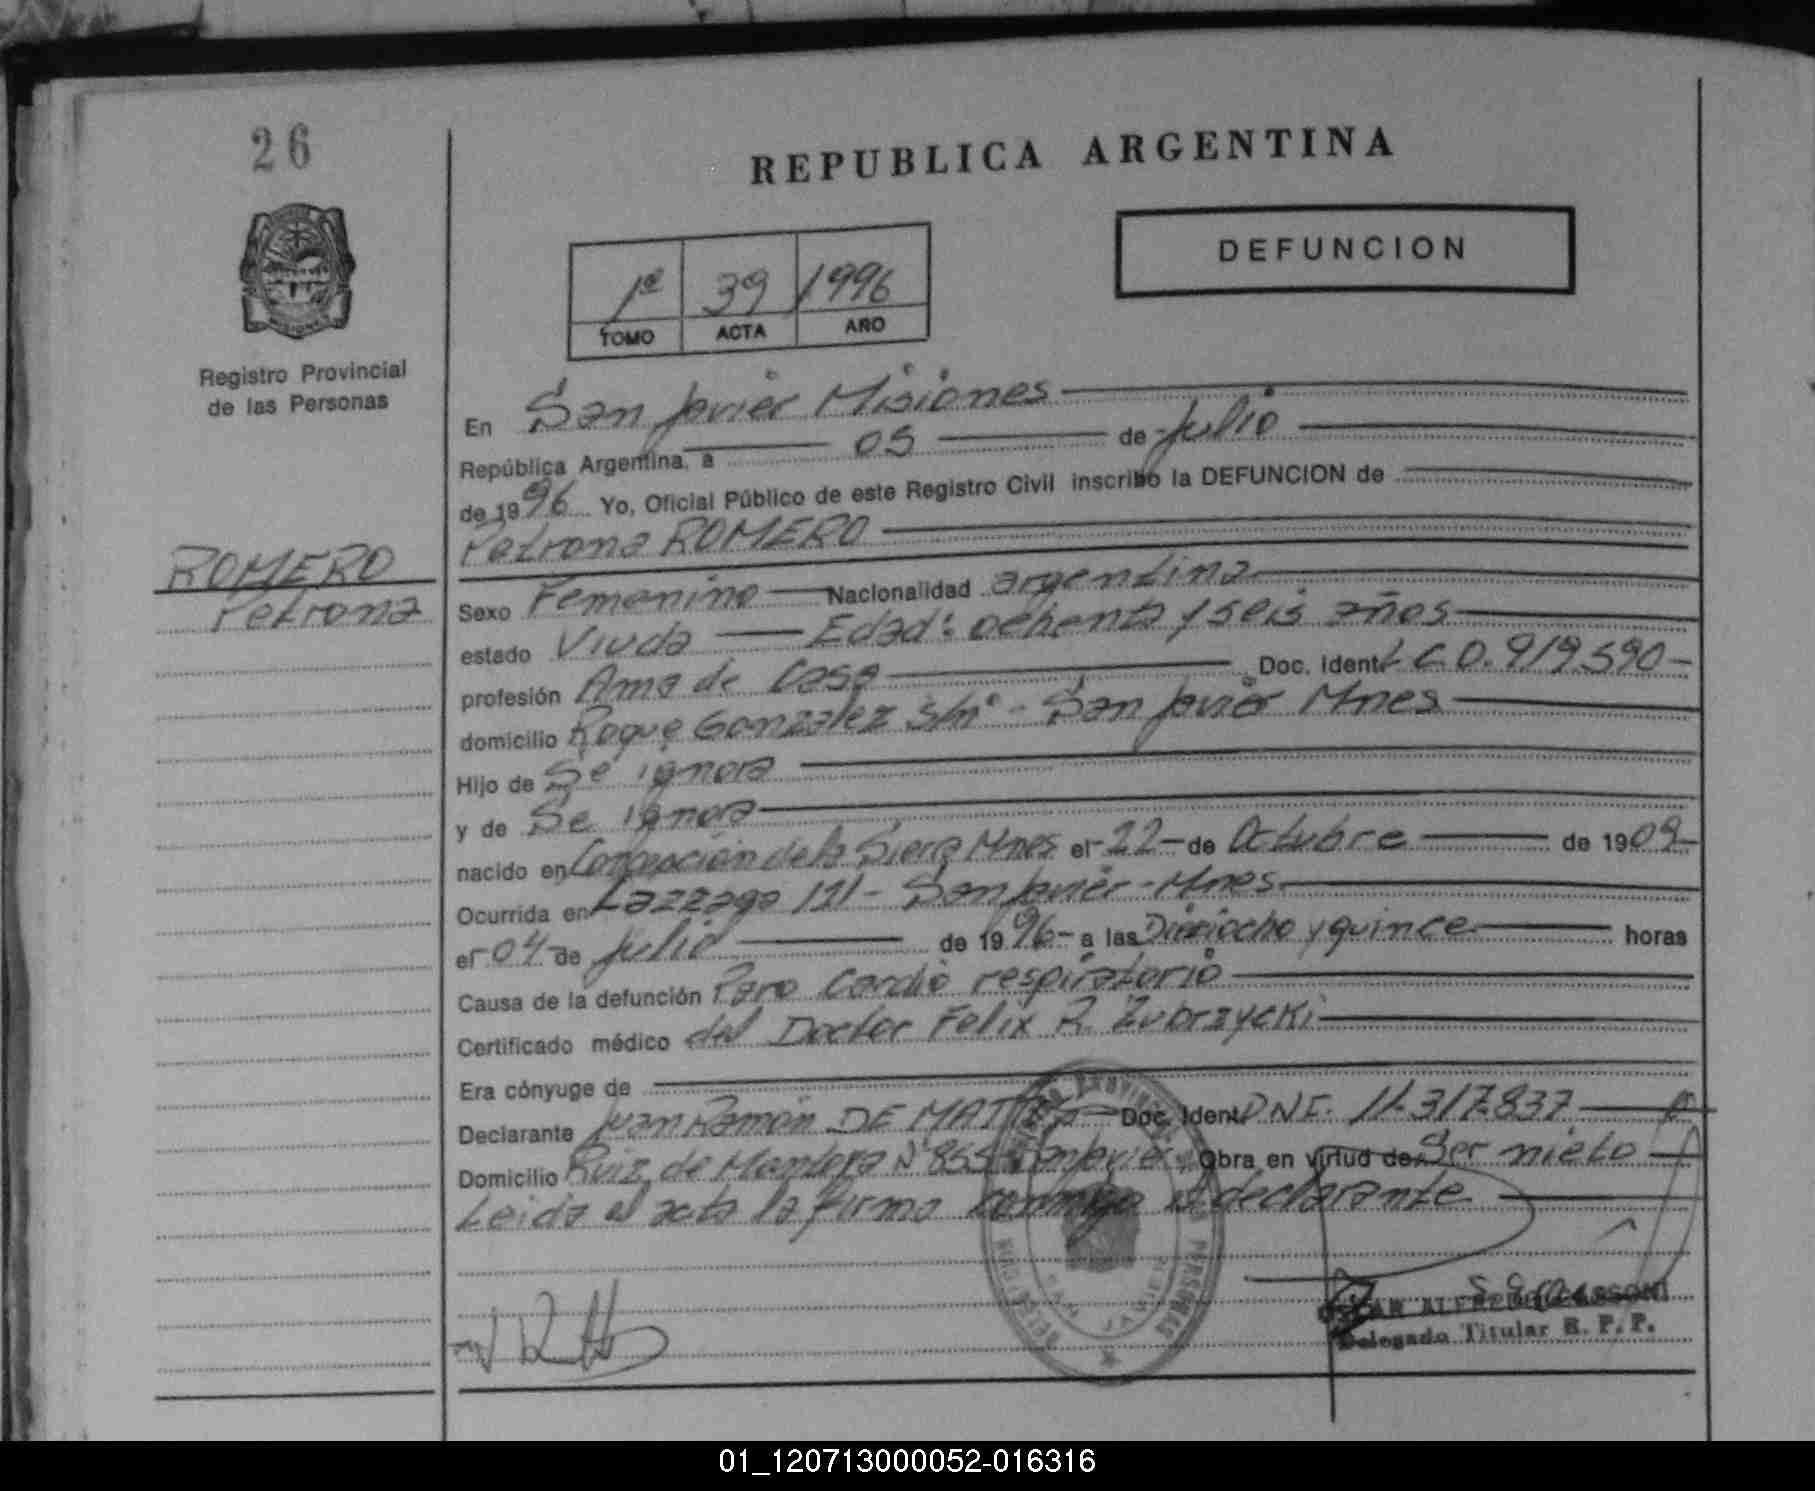 26
REPUBLICA ARGENTINA
DEFUNCION
1º 39 1996
TOMO ACTA AÑO
Registro Provincial
de las Personas
En San Javier Misiones
República Argentina, a 05 de Julio
de 1996 Yo, Oficial Público de este Registro Civil inscribo la DEFUNCION de
Petrona ROMERO
ROMERO
Petrona
Sexo Femenino Nacionalidad argentina
estado Viuda Edad: ochenta y seis años
profesión Ama de Casa Doc. Ident. L C 0.919.590
domicilio Roque Gonzalez s/nº - San Javier Mnes
Hijo de Se ignora
y de Se ignora
nacido en Concepción de la Sierra Mnes el 22 de Octubre de 1909
Ocurrida en Lazzaga 121 - San Javier - Mnes
el 04 de Julio de 1996 a las Dieciocho y quince horas
Causa de la defunción Paro Cardio respiratorio
Certificado médico del Doctor Felix R. Zubrzycki
Era cónyuge de
Declarante Juan Ramón DE Doc. Ident. DNI. 11.317.837
Domicilio Ruiz de Montoya Nº 855 San Javier Obra en virtud de Ser nieto
Leida el acta la firma conmigo el declarante
OSCAR ALFREDO
Delegado Titular R. P. P.
01_120713000052-016316